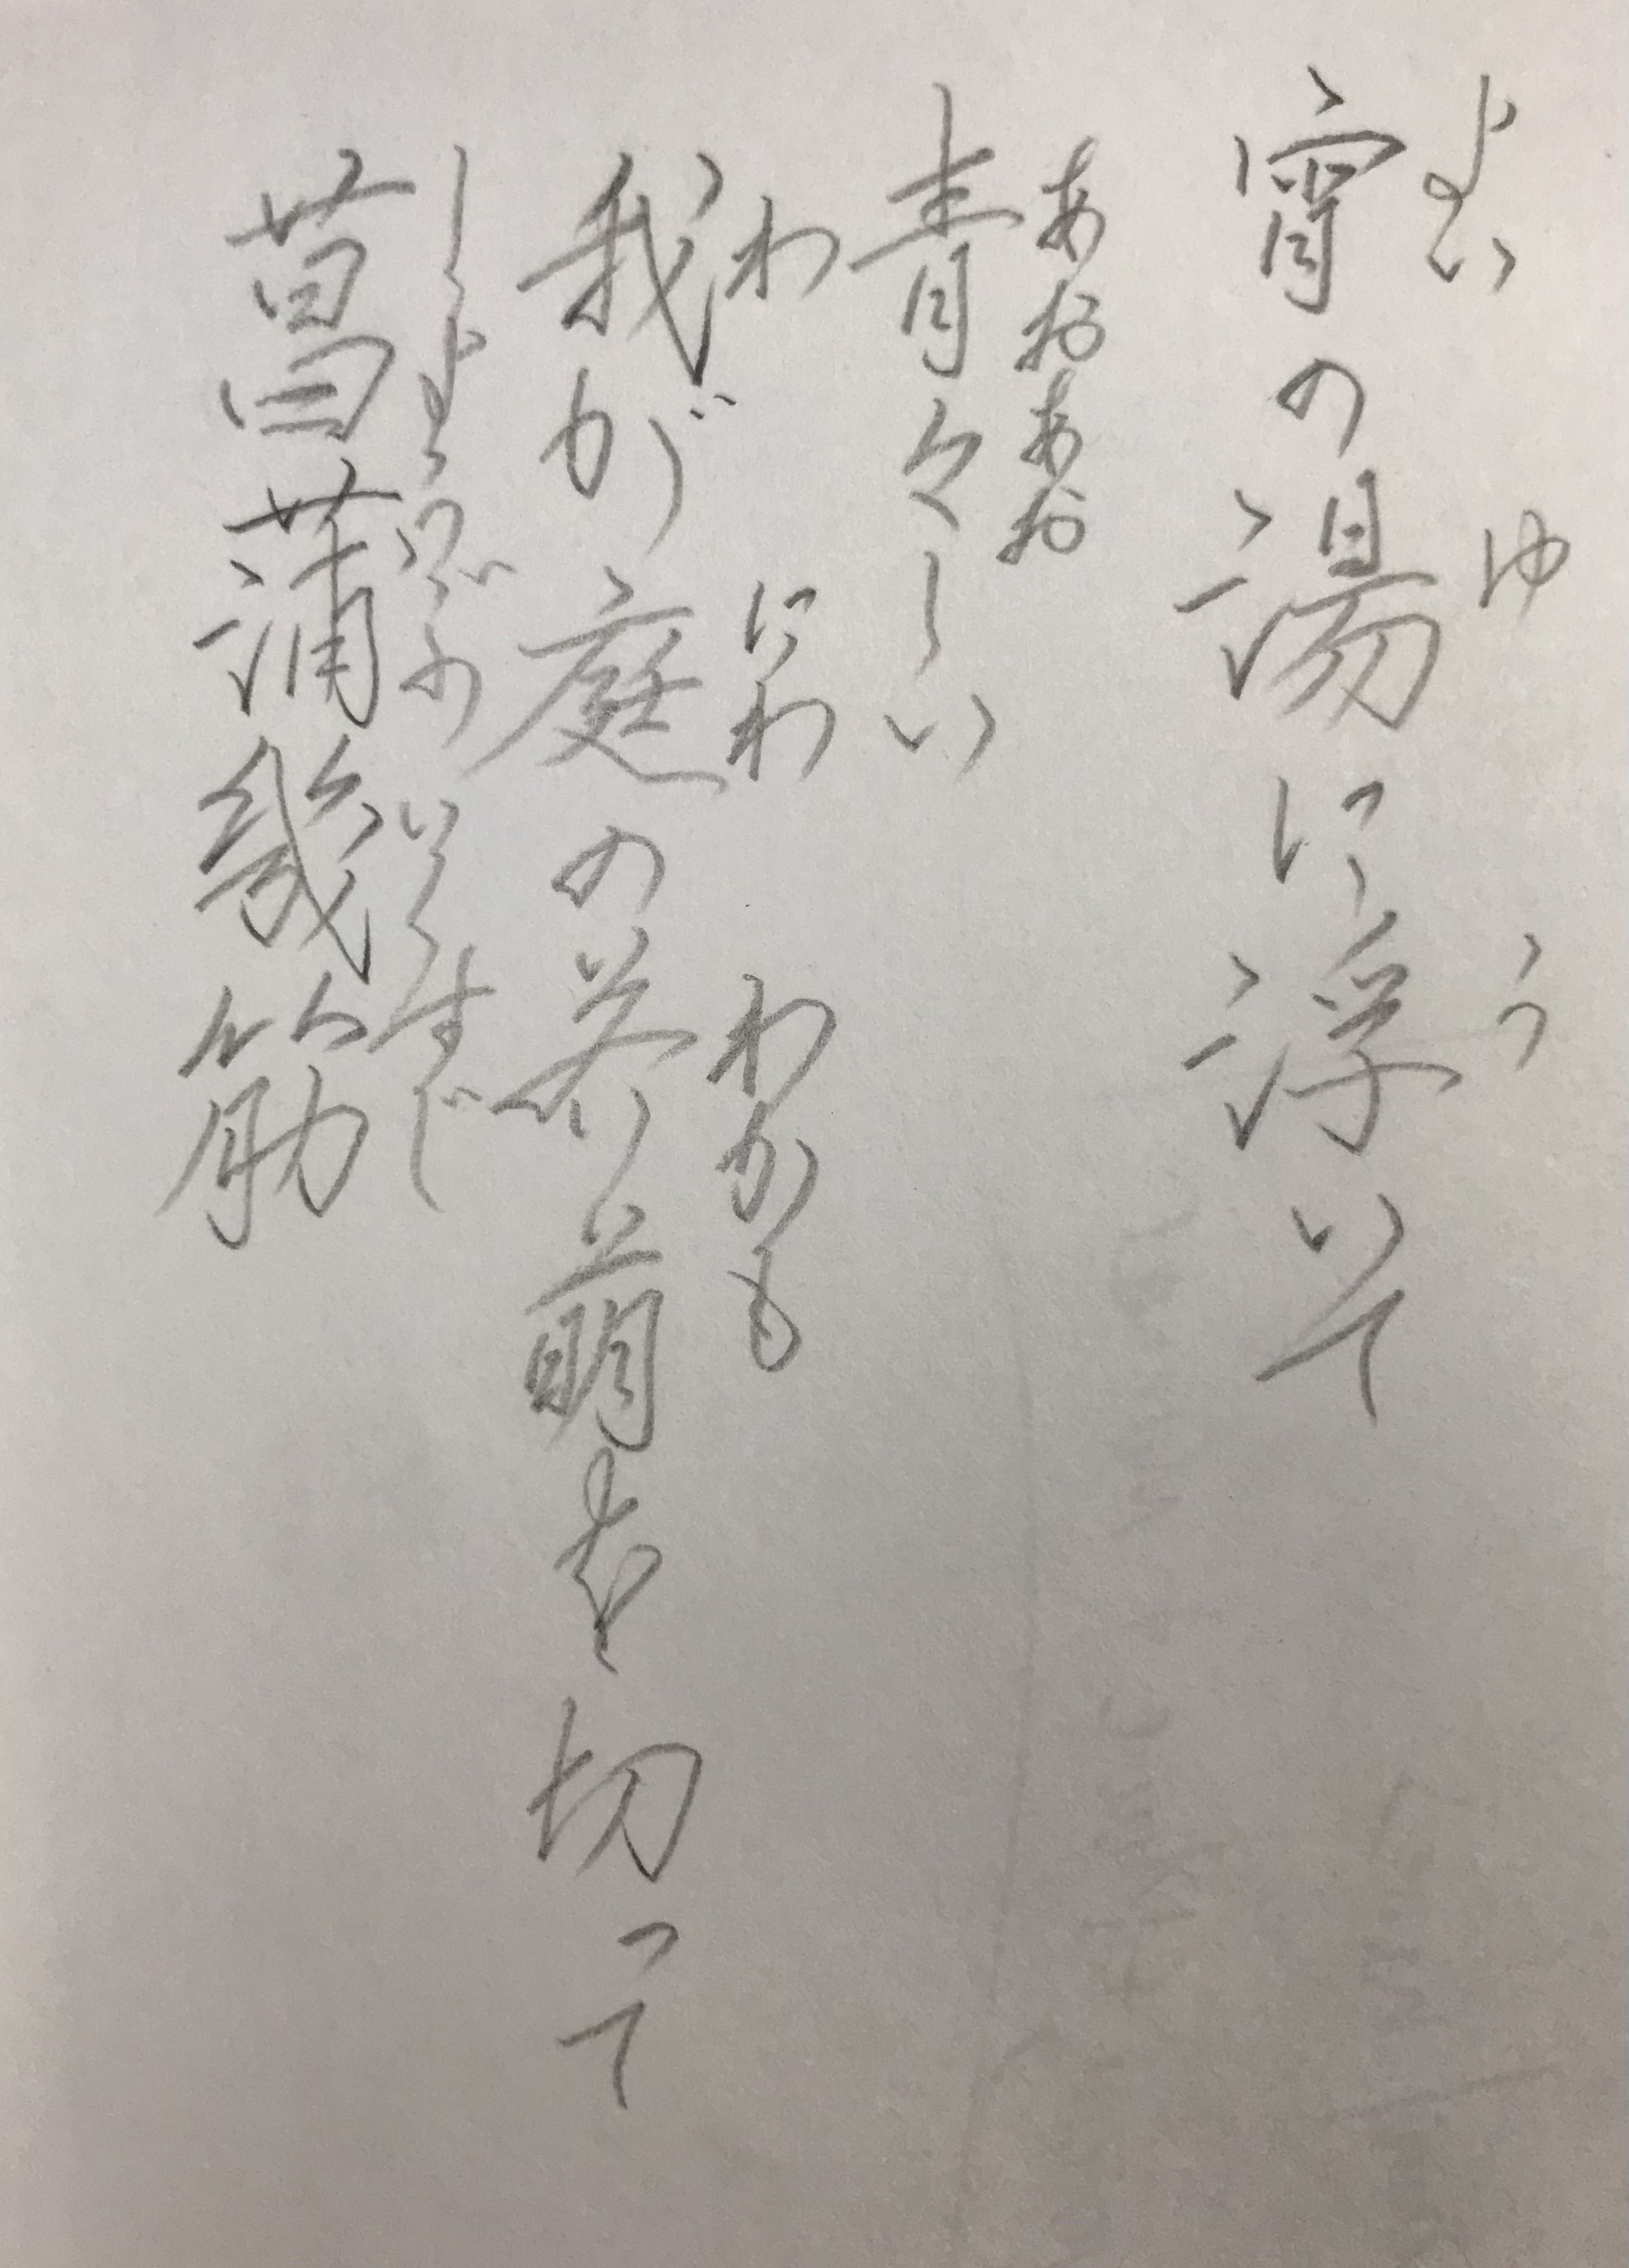 よい ゆ う
宵の湯に浮いて
あおあお
青々しい
わ にわ わかも
我が庭の若萌を切って
しょうぶ いくすじ
菖蒲幾筋